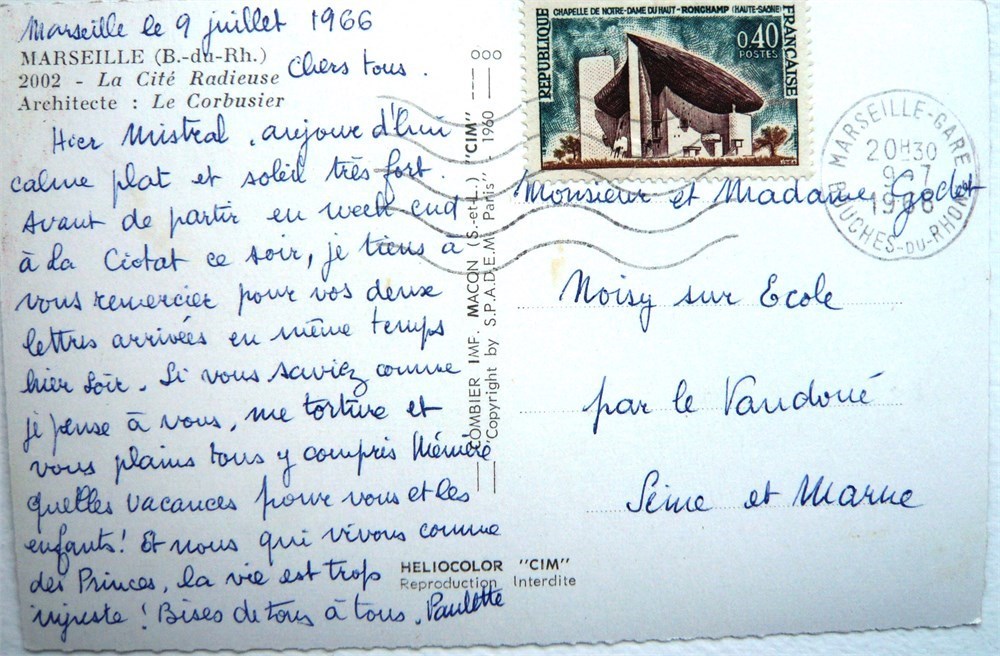 Marseille le 9 juillet 1966
MARSEILLE (B.-du-Rh.)
2002 - La Cité Radieuse
Architecte : Le Corbusier
Chers tous.
Hier Mistral, aujourd'hui
calme plat et soleil très fort.
Avant de partir en week end
à la Ciotat ce soir, je tiens à
vous remercier pour vos deux
lettres arrivées en même temps
hier soir. Si vous saviez comme
je pense à vous, me torture et
vous plains tous y compris Mémère
quelles vacances pour vous et les
enfants! Et nous qui vivons comme
des Princes, la vie est trop
injuste! Bises de tous à tous. Paulette
COMBIER IMP. MACON (S.-et-L.) "CIM"
"Copyright by S.P.A.D.E.M. Paris" 1960
HELIOCOLOR "CIM"
Reproduction Interdite
RÉPUBLIQUE FRANÇAISE
CHAPELLE DE NOTRE-DAME DU HAUT - RONCHAMP (HAUTE-SAÔNE)
0,40
POSTES
MARSEILLE-GARE
20H30
9-7
1966
BOUCHES-DU-RHONE
Monsieur et Madame Godot
Noisy sur Ecole
par le Vaudoué
Seine et Marne